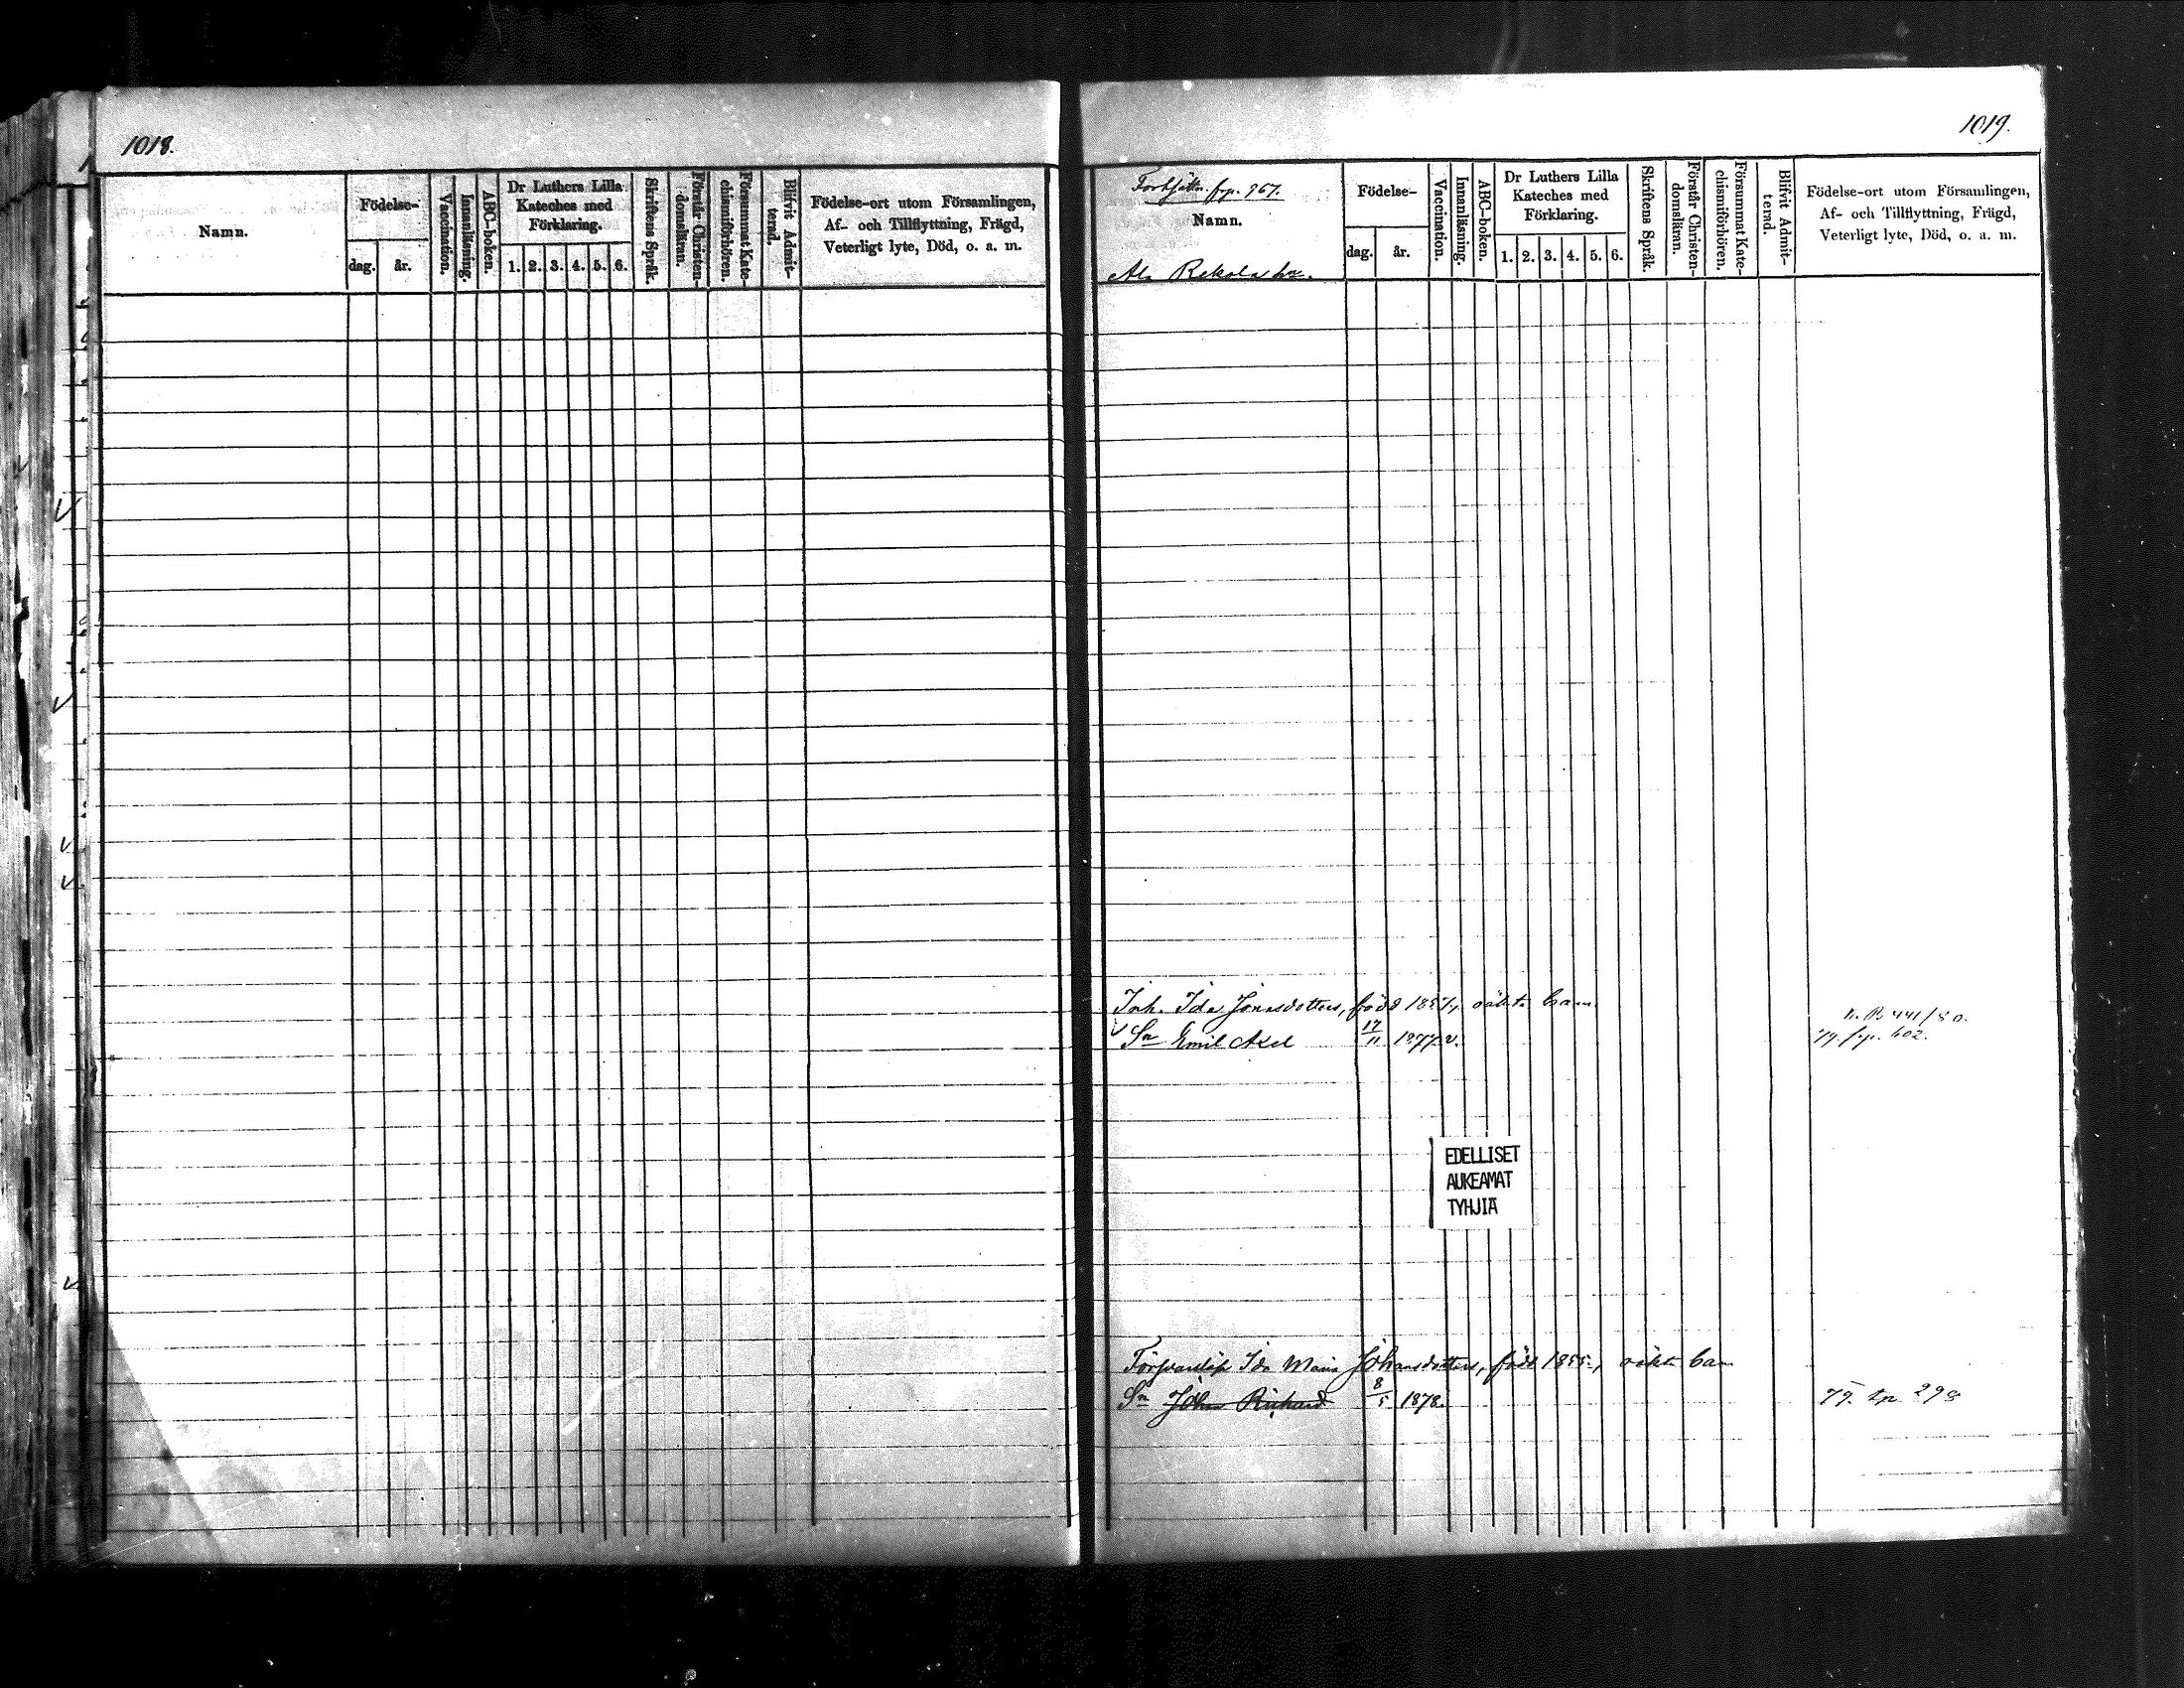 1018.
Namn.
Födelse-
dag. år.
Vaccination.
Innanläsning.
ABC-boken.
Dr Luthers Lilla
Kateches med
Förklaring.
1. 2. 3. 4. 5. 6.
Skriftens Språk.
Förstår Christen-
domsläran.
Försummat Kate-
chismiförhören.
Blifvit Admit-
terad.
Födelse-ort utom Församlingen,
Af- och Tillflyttning, Frägd,
Veterligt lyte, Död, o. a. m.
1019.
frp. 967.
Namn.
Ala Rekola
Födelse-
dag. år.
Vaccination.
Innanläsning.
ABC-boken.
Dr Luthers Lilla
Kateches med
Förklaring.
1. 2. 3. 4. 5. 6.
Skriftens Språk.
Förstår Christen-
domsläran.
Försummat Kate-
chismiförhören.
Blifvit Admit-
terad.
Födelse-ort utom Församlingen,
Af- och Tillflyttning, Frägd,
Veterligt lyte, Död, o. a. m.
Inh. Ida Jonasdotters, född oäkta barn
441/80.
Sn Emil Axel 17/11 1877. v. 79. frp. 602.
EDELLISET
AUKEAMAT
TYHJIÄ
Ida Maria Johansdotters, född 1855, oäkta barn
Sn Johan Richard 8/5 1878. 79. tp. 298